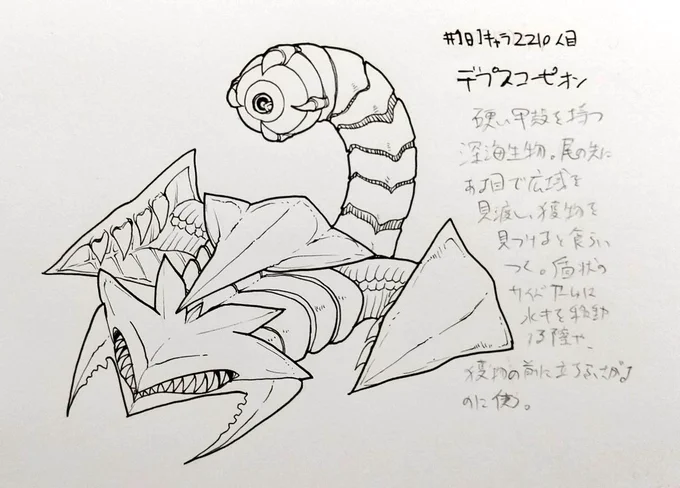 #1日1キャラ2210人目
デプスコーピオン
硬い甲殻を持つ
深海生物。尾の先に
ある目で広域を
見渡し、獲物を
見つけると食らい
つく。歯状の
サイドアームは
水中を移動
する際や、
獲物の前に立ちふさがる
のに使う。